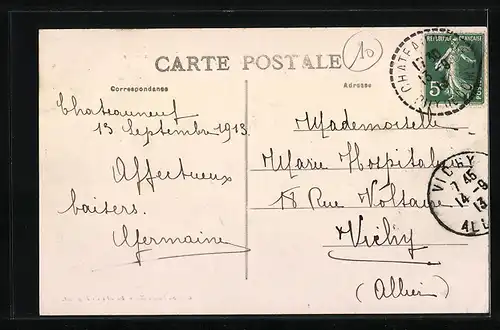 10
CARTE POSTALE
Correspondance
Adresse
REPUBLIQUE FRANÇAISE
5c
POSTES
Chateauneuf
13 Septembre 1913.
Affectueux
baisers.
Germaine
Mademoiselle
Marie Hospital
18 Rue Voltaire
Vichy
(Allier)
VICHY
7 45
14 - 9
13
ALL